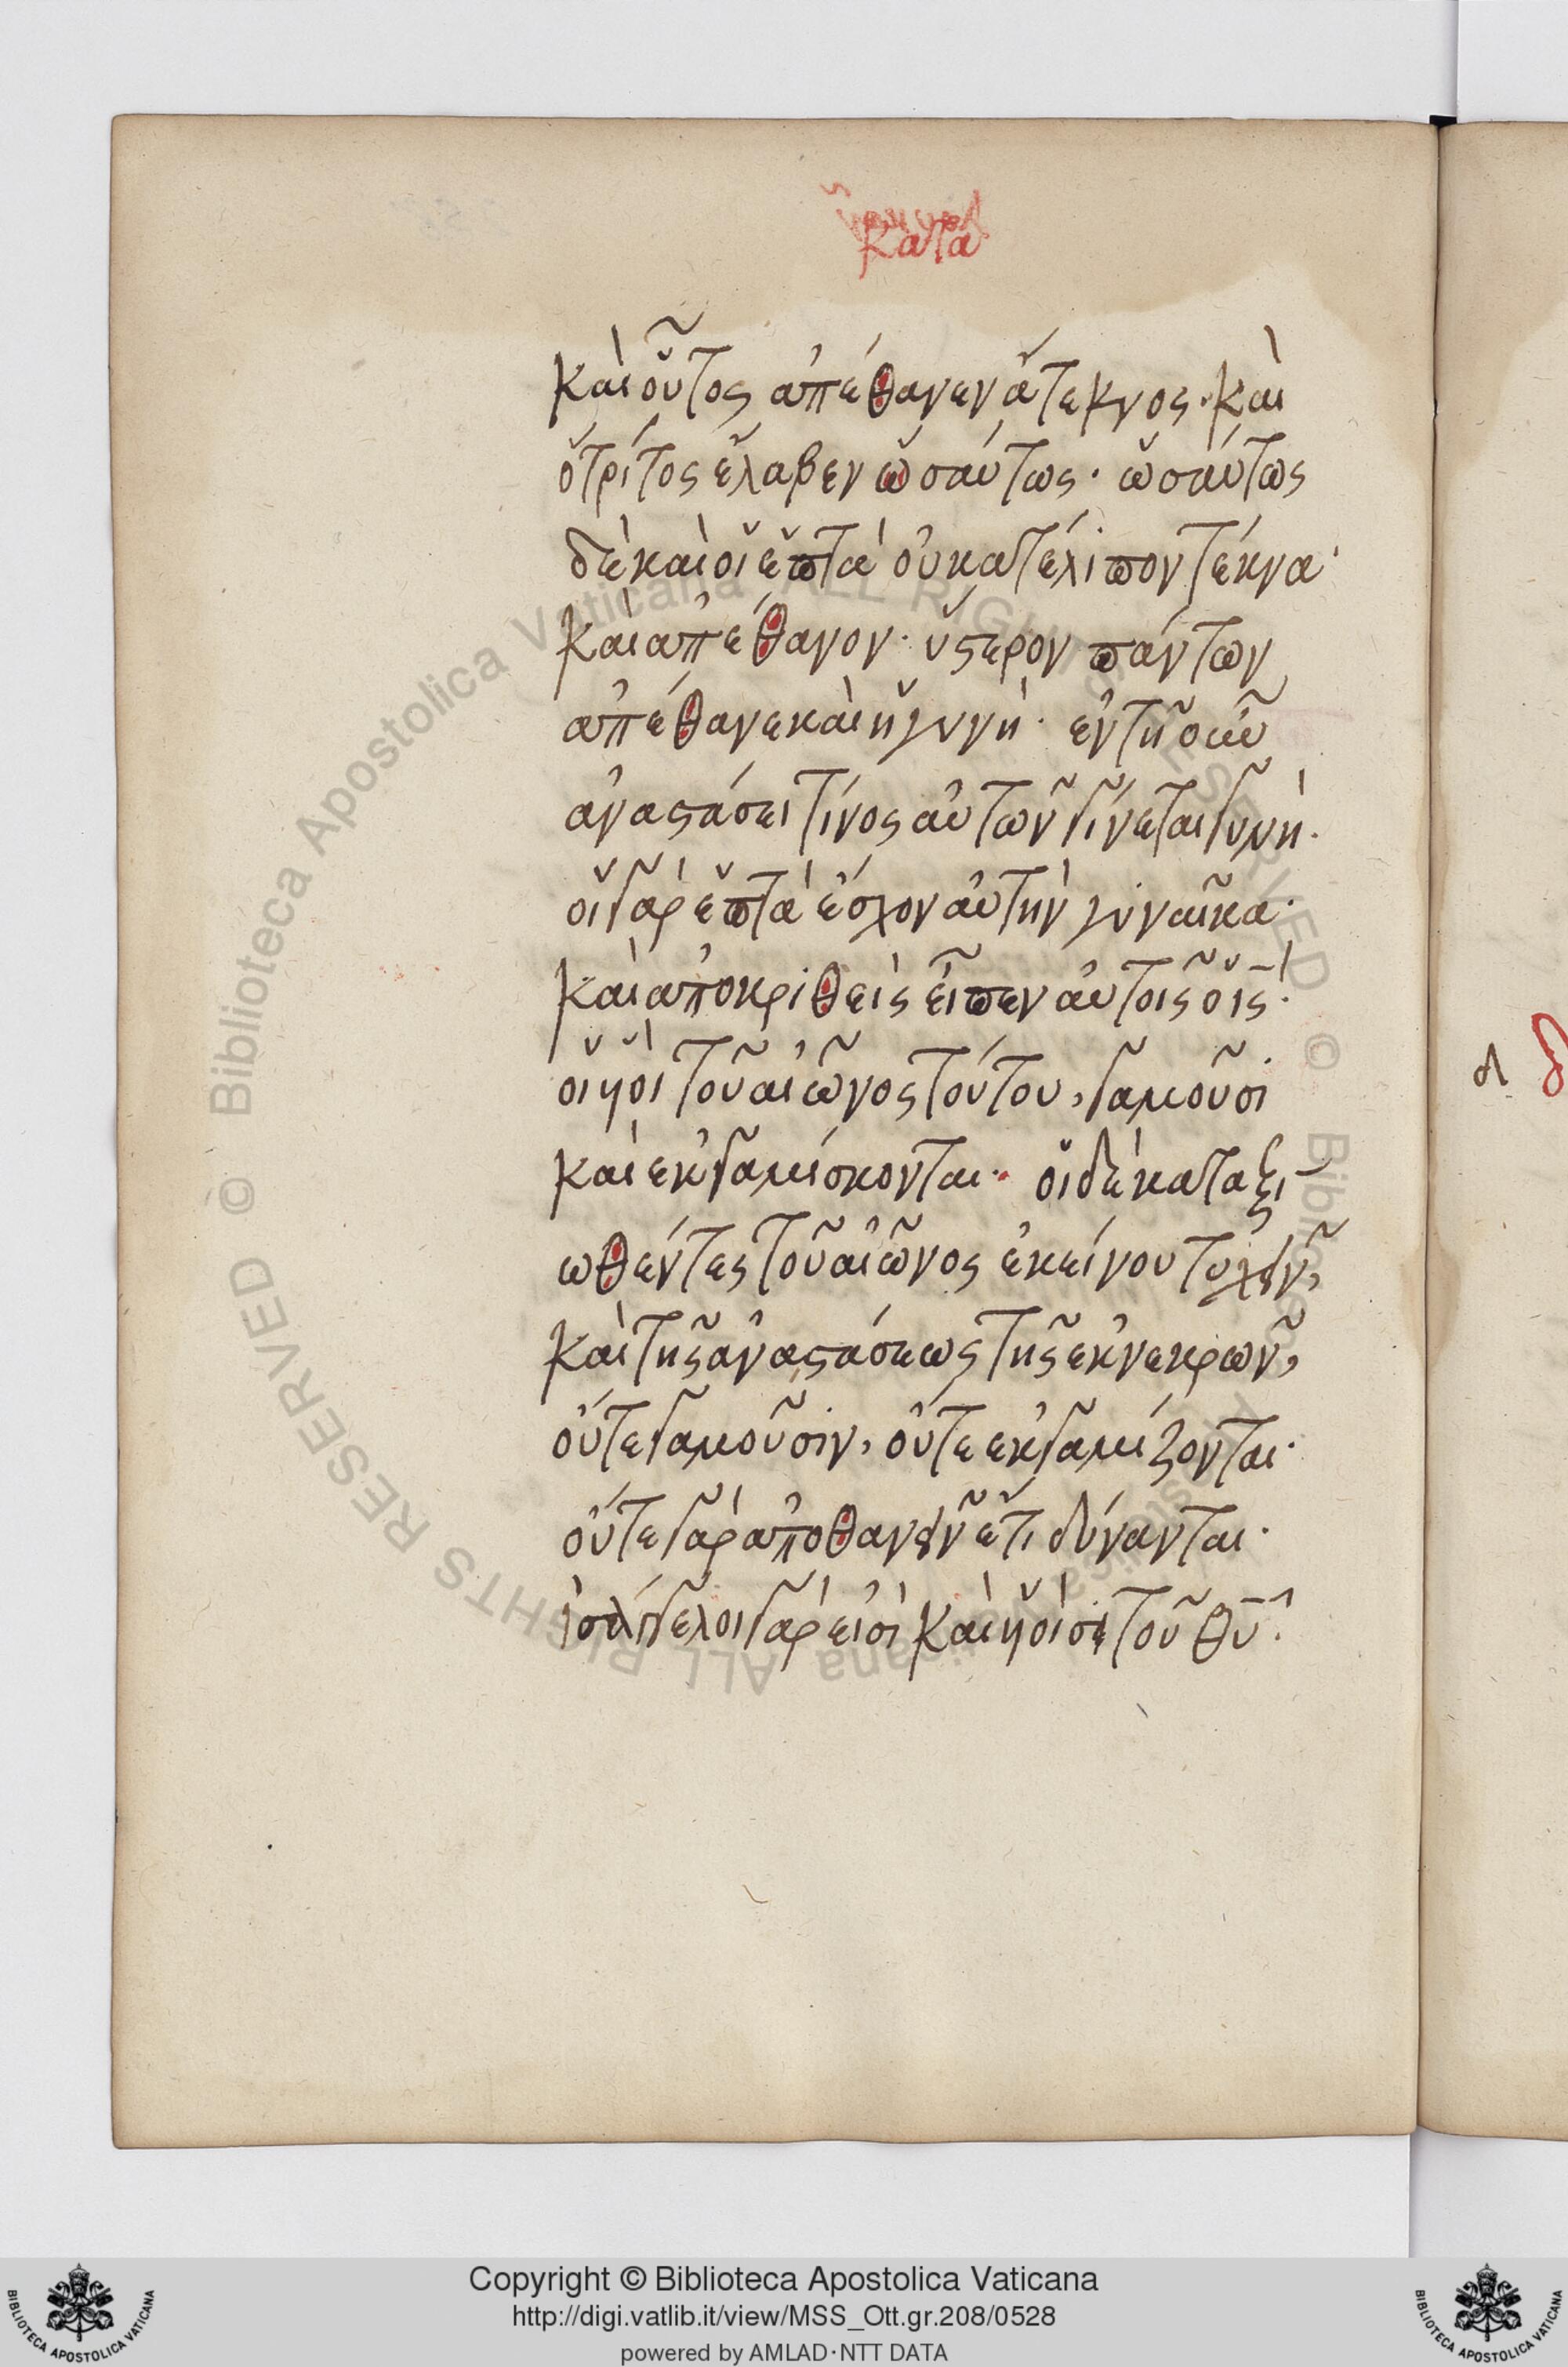 κατὰ
καὶ οὗτος ἀπέθανεν ἄτεκνος· καὶ
ὁ τρίτος ἔλαβεν ὡσαύτως· ὡσαύτως
δὲ καὶ οἱ ἑπτὰ οὐ κατέλιπον τέκνα·
καὶ ἀπέθανον· ὕστερον πάντων
ἀπέθανε καὶ ἡ γυνή· ἐν τῆ οὖν
ἀναστάσει τίνος αὐτῶν γίνεται γυνή·
οἱ γὰρ ἑπτὰ ἔσχον αὐτὴν γυναῖκα·
καὶ ἀποκριθεὶς εἶπεν αὐτοῖς ὁ ις·
οἱ υἱοὶ τοῦ αἰῶνος τούτου, γαμοῦσι
καὶ ἐκγαμίσκονται· οἱ δὲ καταξι
ωθέντες τοῦ αἰῶνος ἐκείνου τυχεῖν,
καὶ τῆς ἀναστάσεως τῆς ἐκ νεκρῶν,
οὔτε γαμοῦσιν, οὔτε ἐκγαμίζονται·
οὔτε γὰρ ἀποθανεῖν ἔτι δύνανται·
ἰσάγγελοι γάρ εἰσι καὶ υἱοί εἰσι τοῦ θυ·
Copyright © Biblioteca Apostolica Vaticana
http://digi.vatlib.it/view/MSS_Ott.gr.208/0528
powered by AMLAD·NTT DATA